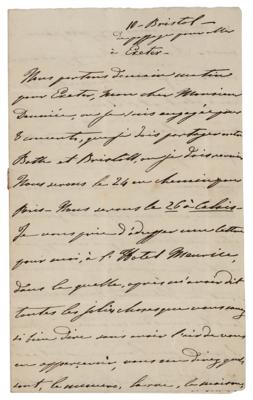 10 - Bristol -
à Exeter -
Nous partons demain matin
pour Exeter, mon cher Monsieur
où je suis engagé pour
concerts, que je dois partager entre
Bath et Bristol, où je dois revenir
Nous serons le 24 en chemin pour
Paris - Nous serons le 26 à Calais -
Je vous prie d'adresser une lettre
pour moi, à l'Hotel Meurice,
dans laquelle, après m'avoir dit
toutes les jolies choses que vous savez
si bien dire sans avoir l'air de vous
en appercevoir, vous me direz
la rue, la maison,